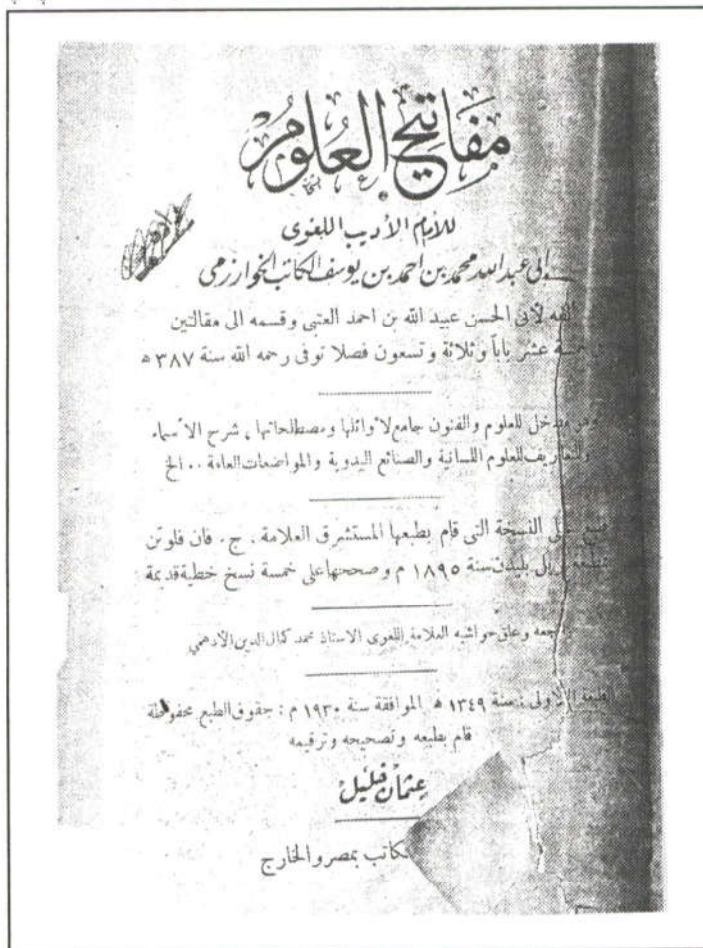 مفاتيح العلوم
للإمام الأديب اللغوى
ابى عبد الله محمد بن احمد بن يوسف الكاتب الخوارزمى
ألفه لأبى الحسن عبيد الله بن احمد العتبى وقسمه الى مقالتين
عشر باباً وثلاثة وتسعون فصلا توفى رحمه الله سنة ٣٨٧ ه
وهو مدخل للعلوم والفنون جامع لأوائلها ومصطلحاتها، شرح الأسماء
والتعاريف للعلوم اللسانية والصنائع اليدوية والمواضعات العامة .. الخ
على النسخة التى قام بطبعها المستشرق العلامة . ج . فان فلوتن
بليدن سنة ١٨٩٥ م وصححها على خمسة نسخ خطية قديمة
جعه وعلق حواشيه العلامة اللغوى الاستاذ محمد كمال الدين الأدهمي
الطبعة الأولى : سنة ١٣٤٩ ه الموافقة سنة ١٩٣٠ م : حقوق الطبع محفوظة
قام بطبعه وتصحيحه وترقيمه
عثمان خليل
كاتب بمصر والخارج